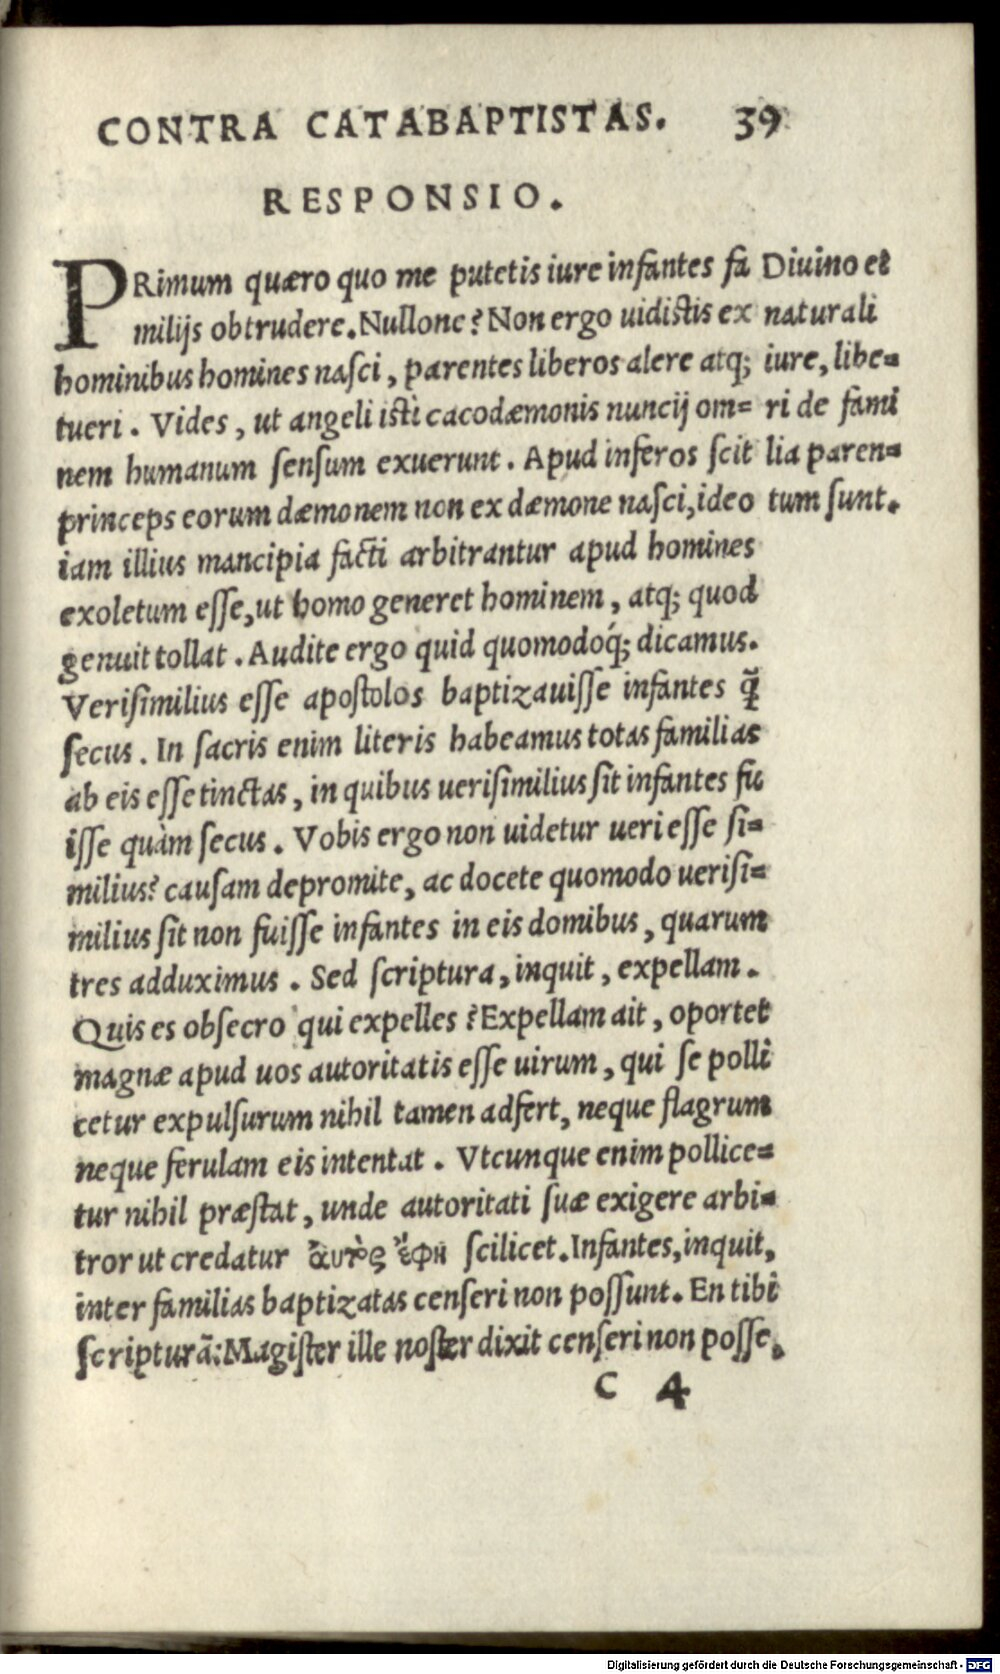 CONTRA CATABAPTISTAS. 39
RESPONSIO.
PRimum quæro quo me putetis iure infantes fa
milijs obtrudere. Nullone? Non ergo uidistis ex
hominibus homines nasci, parentes liberos alere atq;
tueri. Vides, ut angeli isti cacodæmonis nuncij om=
nem humanum sensum exuerunt. Apud inferos scit
princeps eorum dæmonem non ex dæmone nasci, ideo
iam illius mancipia facti arbitrantur apud homines
exoletum esse, ut homo generet hominem, atq; quod
genuit tollat. Audite ergo quid quomodoq́; dicamus.
Verisimilius esse apostolos baptizauisse infantes q̃
secus. In sacris enim literis habeamus totas familias
ab eis esse tinctas, in quibus uerisimilius sit infantes fu
isse quàm secus. Vobis ergo non uidetur ueri esse si=
milius? causam depromite, ac docete quomodo uerisi=
milius sit non fuisse infantes in eis domibus, quarum
tres adduximus. Sed scriptura, inquit, expellam.
Quis es obsecro qui expelles? Expellam ait, oportet
magnæ apud uos autoritatis esse uirum, qui se polli
cetur expulsurum nihil tamen adfert, neque flagrum
neque ferulam eis intentat. Vtcunque enim pollice=
tur nihil præstat, unde autoritati suæ exigere arbi=
tror ut credatur ἀυτὸς ἔφη scilicet. Infantes, inquit,
inter familias baptizatas censeri non possunt. En tibi
scripturã: Magister ille noster dixit censeri non posse.
Diuino et
naturali
iure, libe=
ri de fami
lia paren=
tum sunt.
C 4
Digitalisierung gefördert durch die Deutsche Forschungsgemeinschaft - DFG